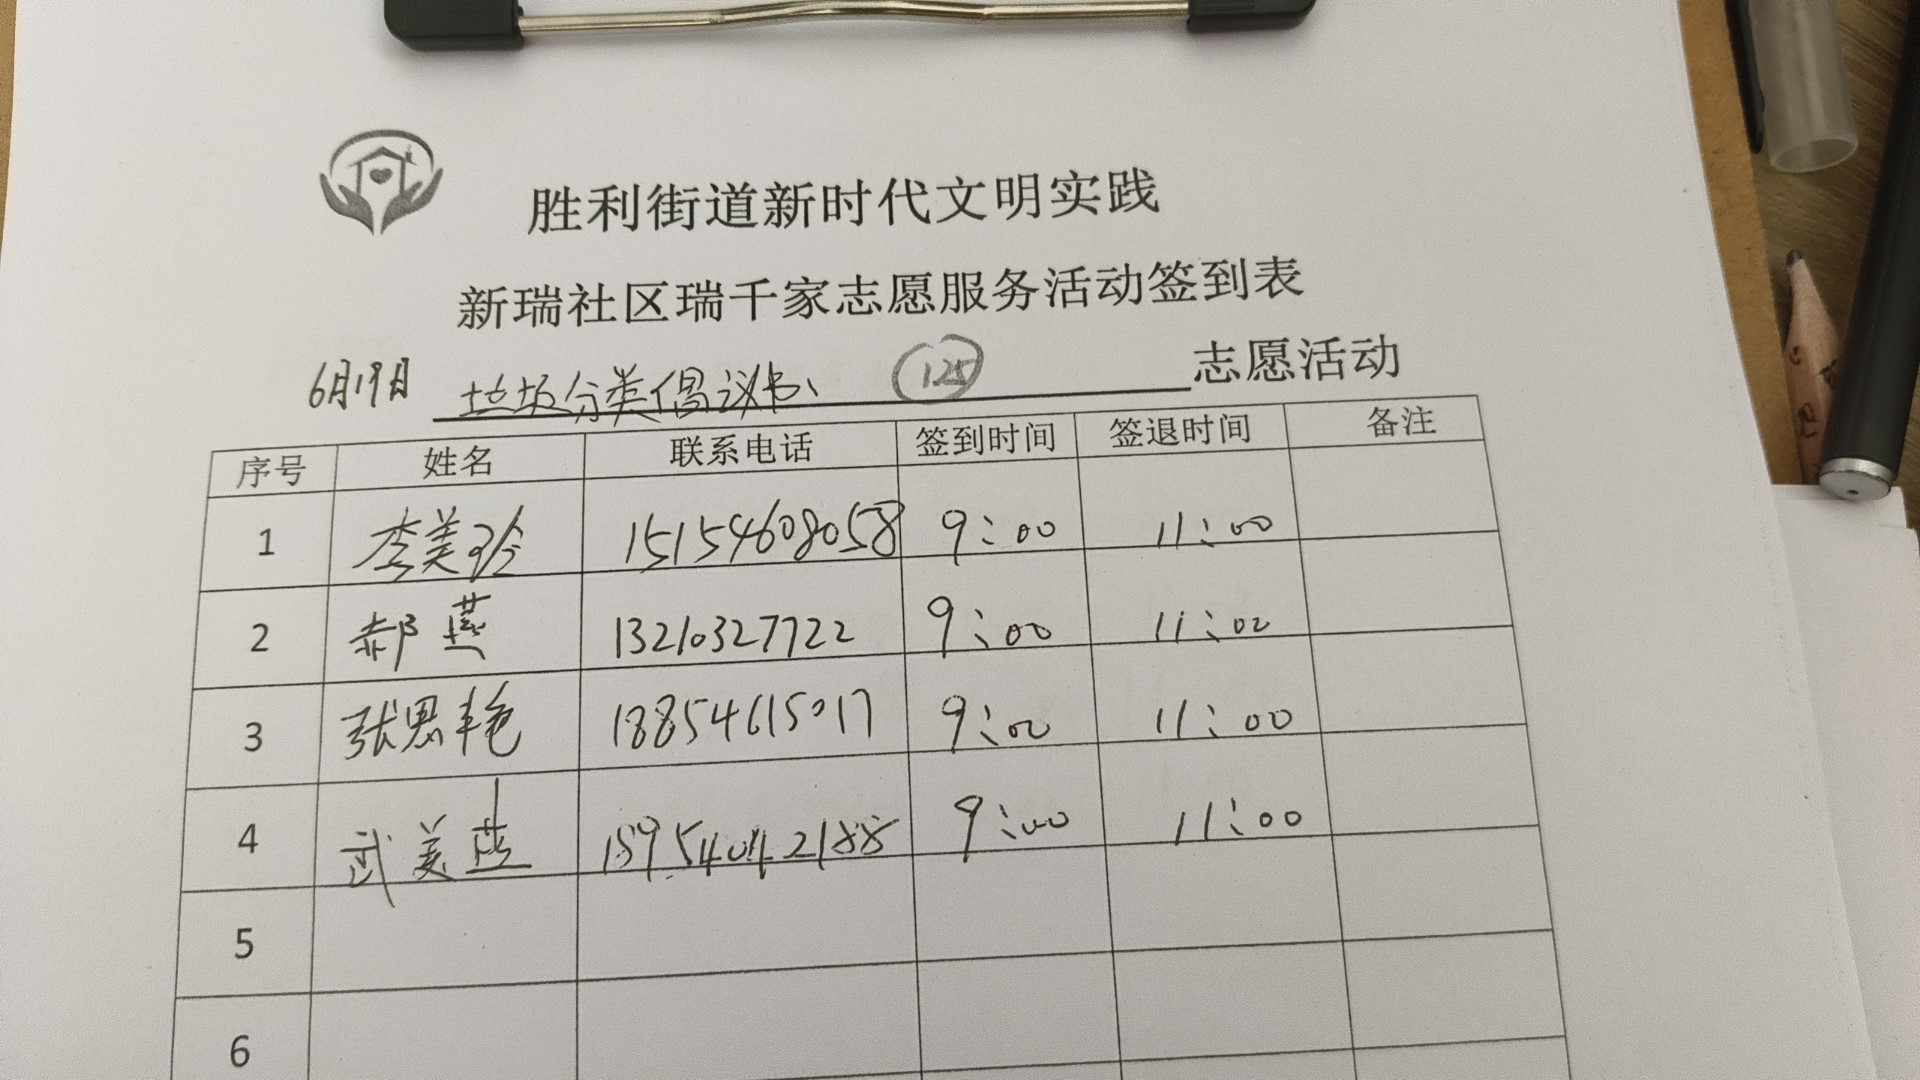 胜利街道新时代文明实践
新瑞社区瑞千家志愿服务活动签到表
6月19日 垃圾分类倡议书 125 志愿活动
序号 姓名 联系电话 签到时间 签退时间 备注
1 李美玲 15154608058 9:00 11:00
2 郝燕 13210327722 9:00 11:00
3 张思艳 18854615017 9:00 11:00
4 武美燕 9:00 11:00
5
6